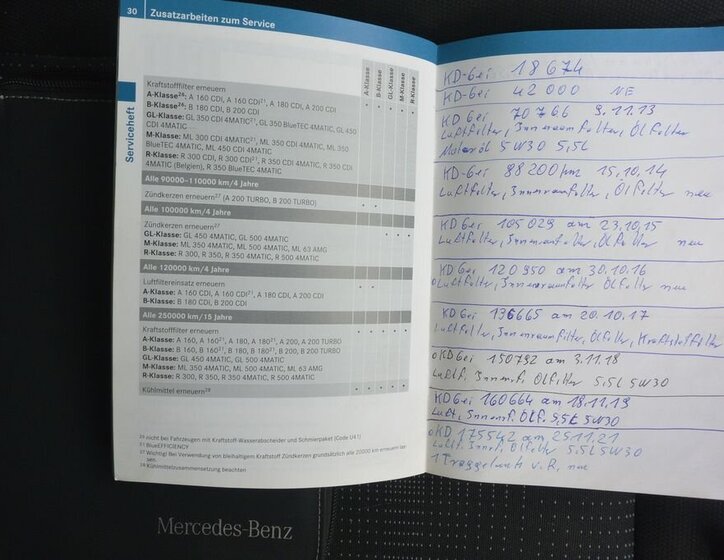 30 Zusatzarbeiten zum Service
Serviceheft
A-Klasse
B-Klasse
GL-Klasse
M-Klasse
R-Klasse
Kraftstofffilter erneuern
A-Klasse²⁶: A 160 CDI, A 160 CDI²¹, A 180 CDI, A 200 CDI
B-Klasse²⁶: B 180 CDI, B 200 CDI
GL-Klasse: GL 350 CDI 4MATIC²¹, GL 350 BlueTEC 4MATIC, GL 450
CDI 4MATIC
M-Klasse: ML 300 CDI 4MATIC²¹, ML 350 CDI 4MATIC, ML 350
BlueTEC 4MATIC, ML 450 CDI 4MATIC
R-Klasse: R 300 CDI, R 300 CDI²¹, R 350 CDI 4MATIC, R 350 CDI
4MATIC (Belgien), R 350 BlueTEC 4MATIC
Alle 90000–110000 km/4 Jahre
Zündkerzen erneuern²⁷ (A 200 TURBO, B 200 TURBO)
Alle 100000 km/4 Jahre
Zündkerzen erneuern²⁷
GL-Klasse: GL 450 4MATIC, GL 500 4MATIC
M-Klasse: ML 350 4MATIC, ML 500 4MATIC, ML 63 AMG
R-Klasse: R 300, R 350, R 350 4MATIC, R 500 4MATIC
Alle 120000 km/4 Jahre
Luftfiltereinsatz erneuern
A-Klasse: A 160 CDI, A 160 CDI²¹, A 180 CDI, A 200 CDI
B-Klasse: B 180 CDI, B 200 CDI
Alle 250000 km/15 Jahre
Kraftstofffilter erneuern
A-Klasse: A 160, A 160²¹, A 180, A 180²¹, A 200, A 200 TURBO
B-Klasse: B 160, B 160²¹, B 180, B 180²¹, B 200, B 200 TURBO
GL-Klasse: GL 450 4MATIC, GL 500 4MATIC
M-Klasse: ML 350 4MATIC, ML 500 4MATIC, ML 63 AMG
R-Klasse: R 300, R 350, R 350 4MATIC, R 500 4MATIC
Kühlmittel erneuern²⁸
²⁶ nicht bei Fahrzeugen mit Kraftstoff-Wasserabscheider und Schmierpaket (Code U41)
²¹ BlueEFFICIENCY
²⁷ Wichtig! Bei Verwendung von bleihaltigem Kraftstoff Zündkerzen grundsätzlich alle 20000 km erneuern las-
sen.
²⁸ Kühlmittelzusammensetzung beachten
KD bei 18 674
KD-bei 42 000
KD bei 70 766 9.11.13
Luftfilter, Innenraumfilter, Ölfilter
Motoröl 5W30 5,5L
KD-bei 88200 km 15.10.14
Luftfilter, Innenraumfilter, Ölfilter neu
KD bei 105 029 am 23.10.15
Luftfilter, Innenraumfilter, Ölfilter neu
KD bei 120 950 am 30.10.16
Luftfilter, Innenraumfilter Ölfilter neu
KD bei 136665 am 20.10.17
Luftfilter, Innenraumfilter, Ölfilter, Kraftstoffilter
KD bei 150792 am 3.11.18
Luftf. Innenf. Ölfilter 5,5L 5W30
KD bei 160664 am 18.11.19
Luft, Innenf. Ölf. 5,5L 5W30
KD 175542 am 25.11.21
Luftf. Innenf. Ölf. 5,5L 5W30
1 Traggelenk v. R, neu
Mercedes-Benz